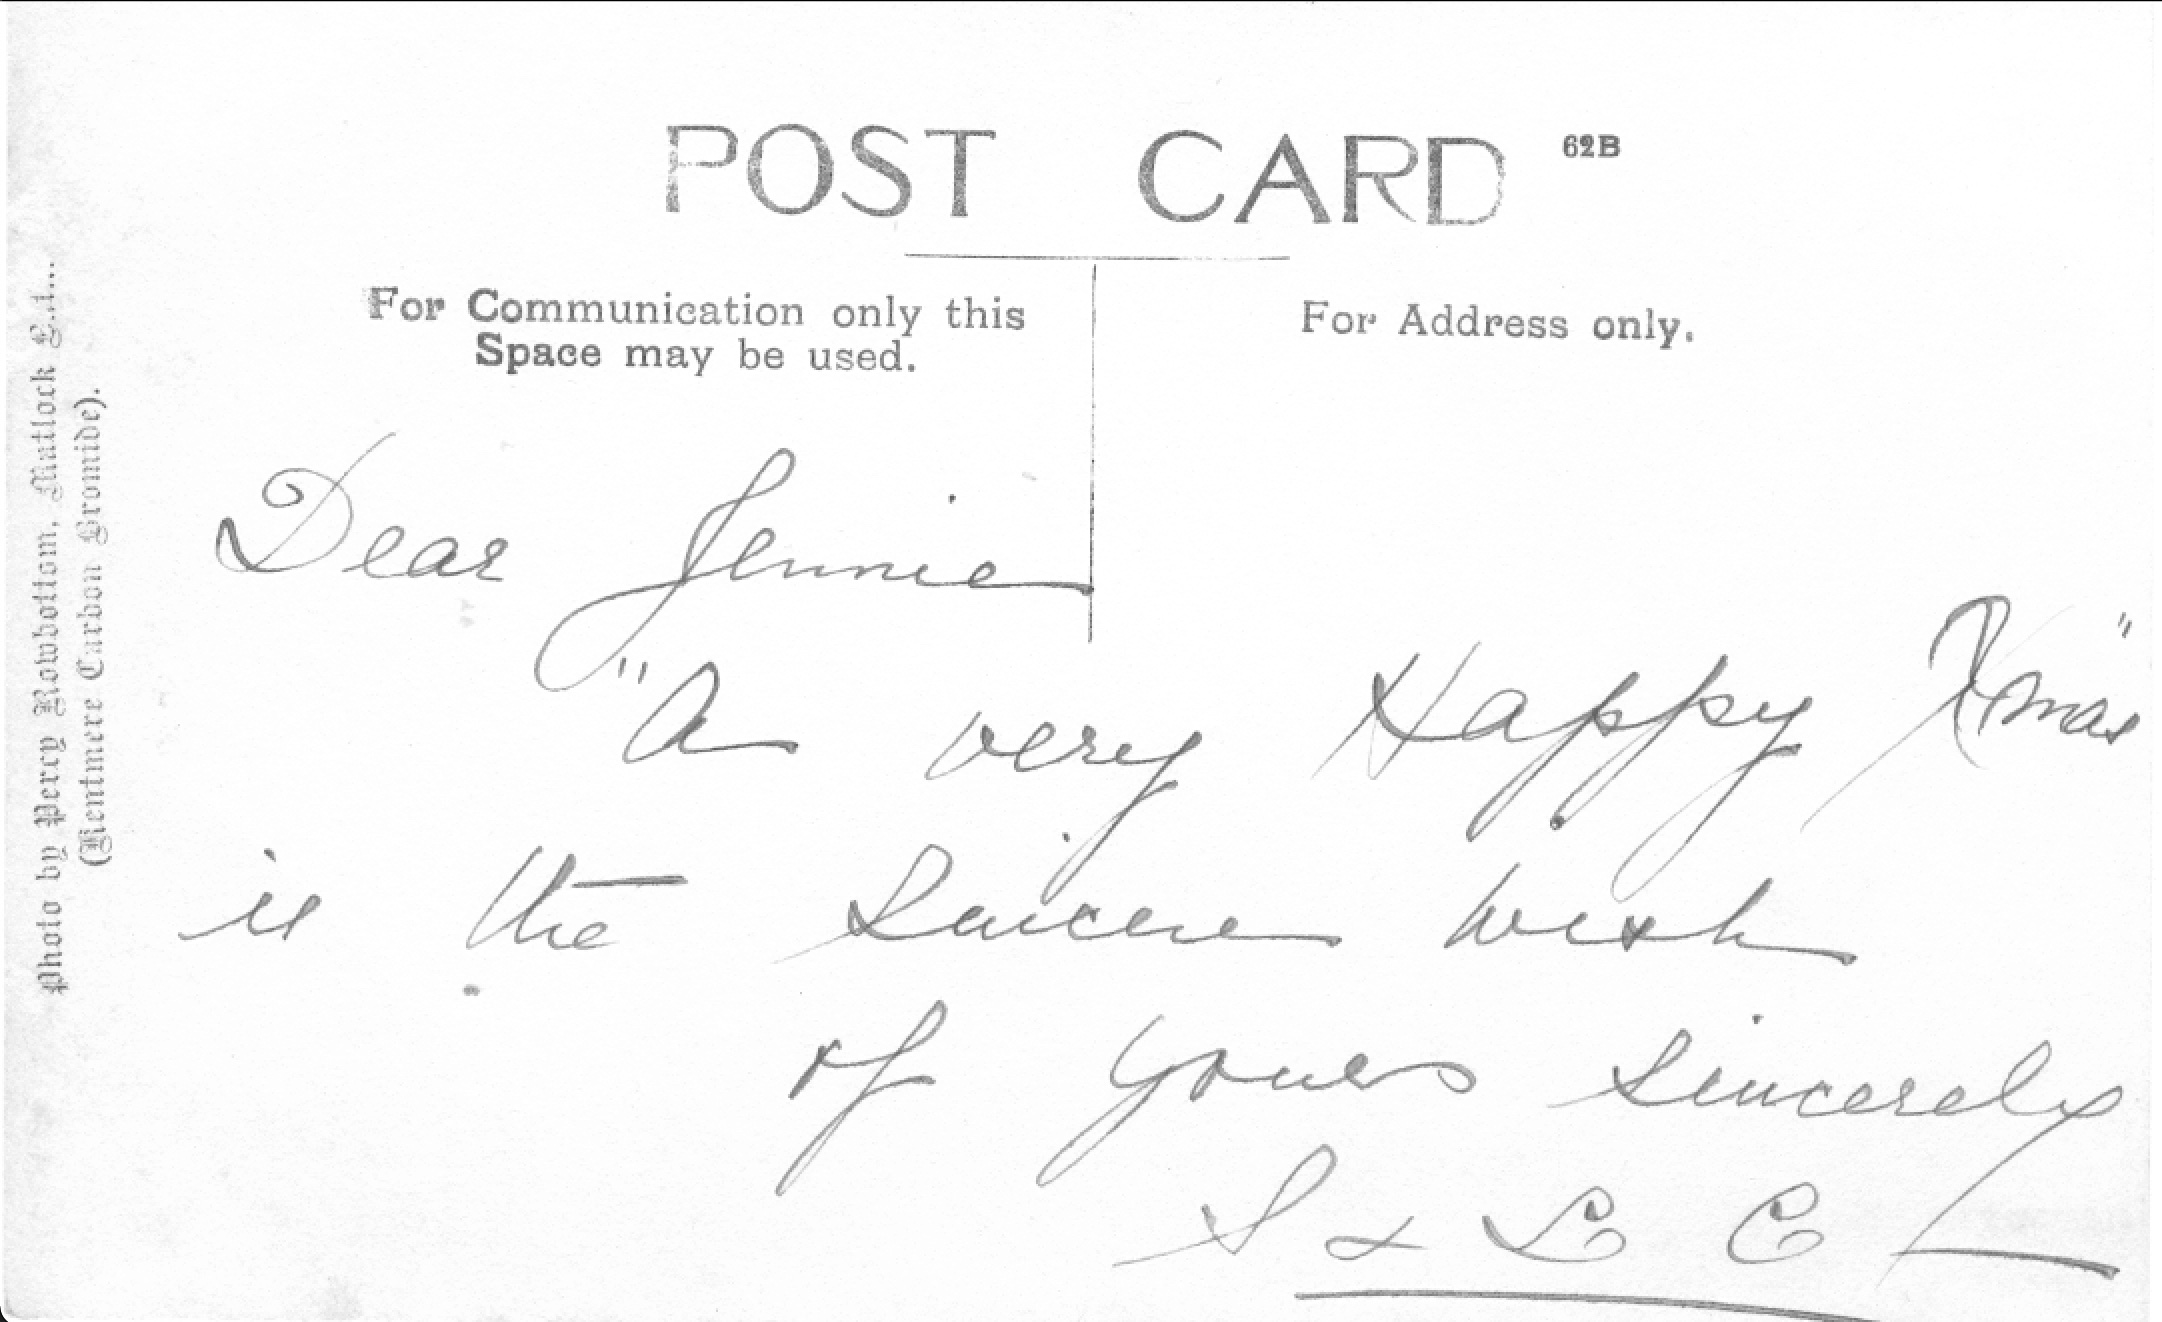 POST CARD 62B
For Communication only this
Space may be used.
For Address only.
Dear Jennie
"A very Happy Xmas"
is the Sincere wish
of yours Sincerely
S & L C
Photo by Percy Rowbottom, Matlock
(Kentmere Carbon Bromide).